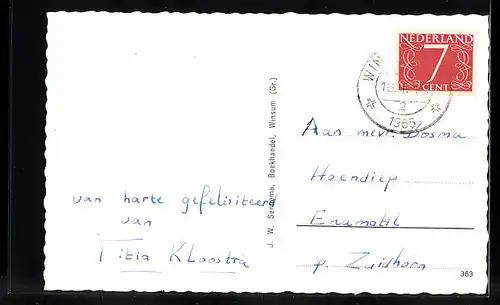 NEDERLAND
7
CENT
1965
Aan mevr. Bosma
Hoendiep
Enumatil
p. Zuidhorn
van harte gefeliciteerd
van
Titia Kloostra
J. W. Boekhandel, Winsum (Gr.)
363